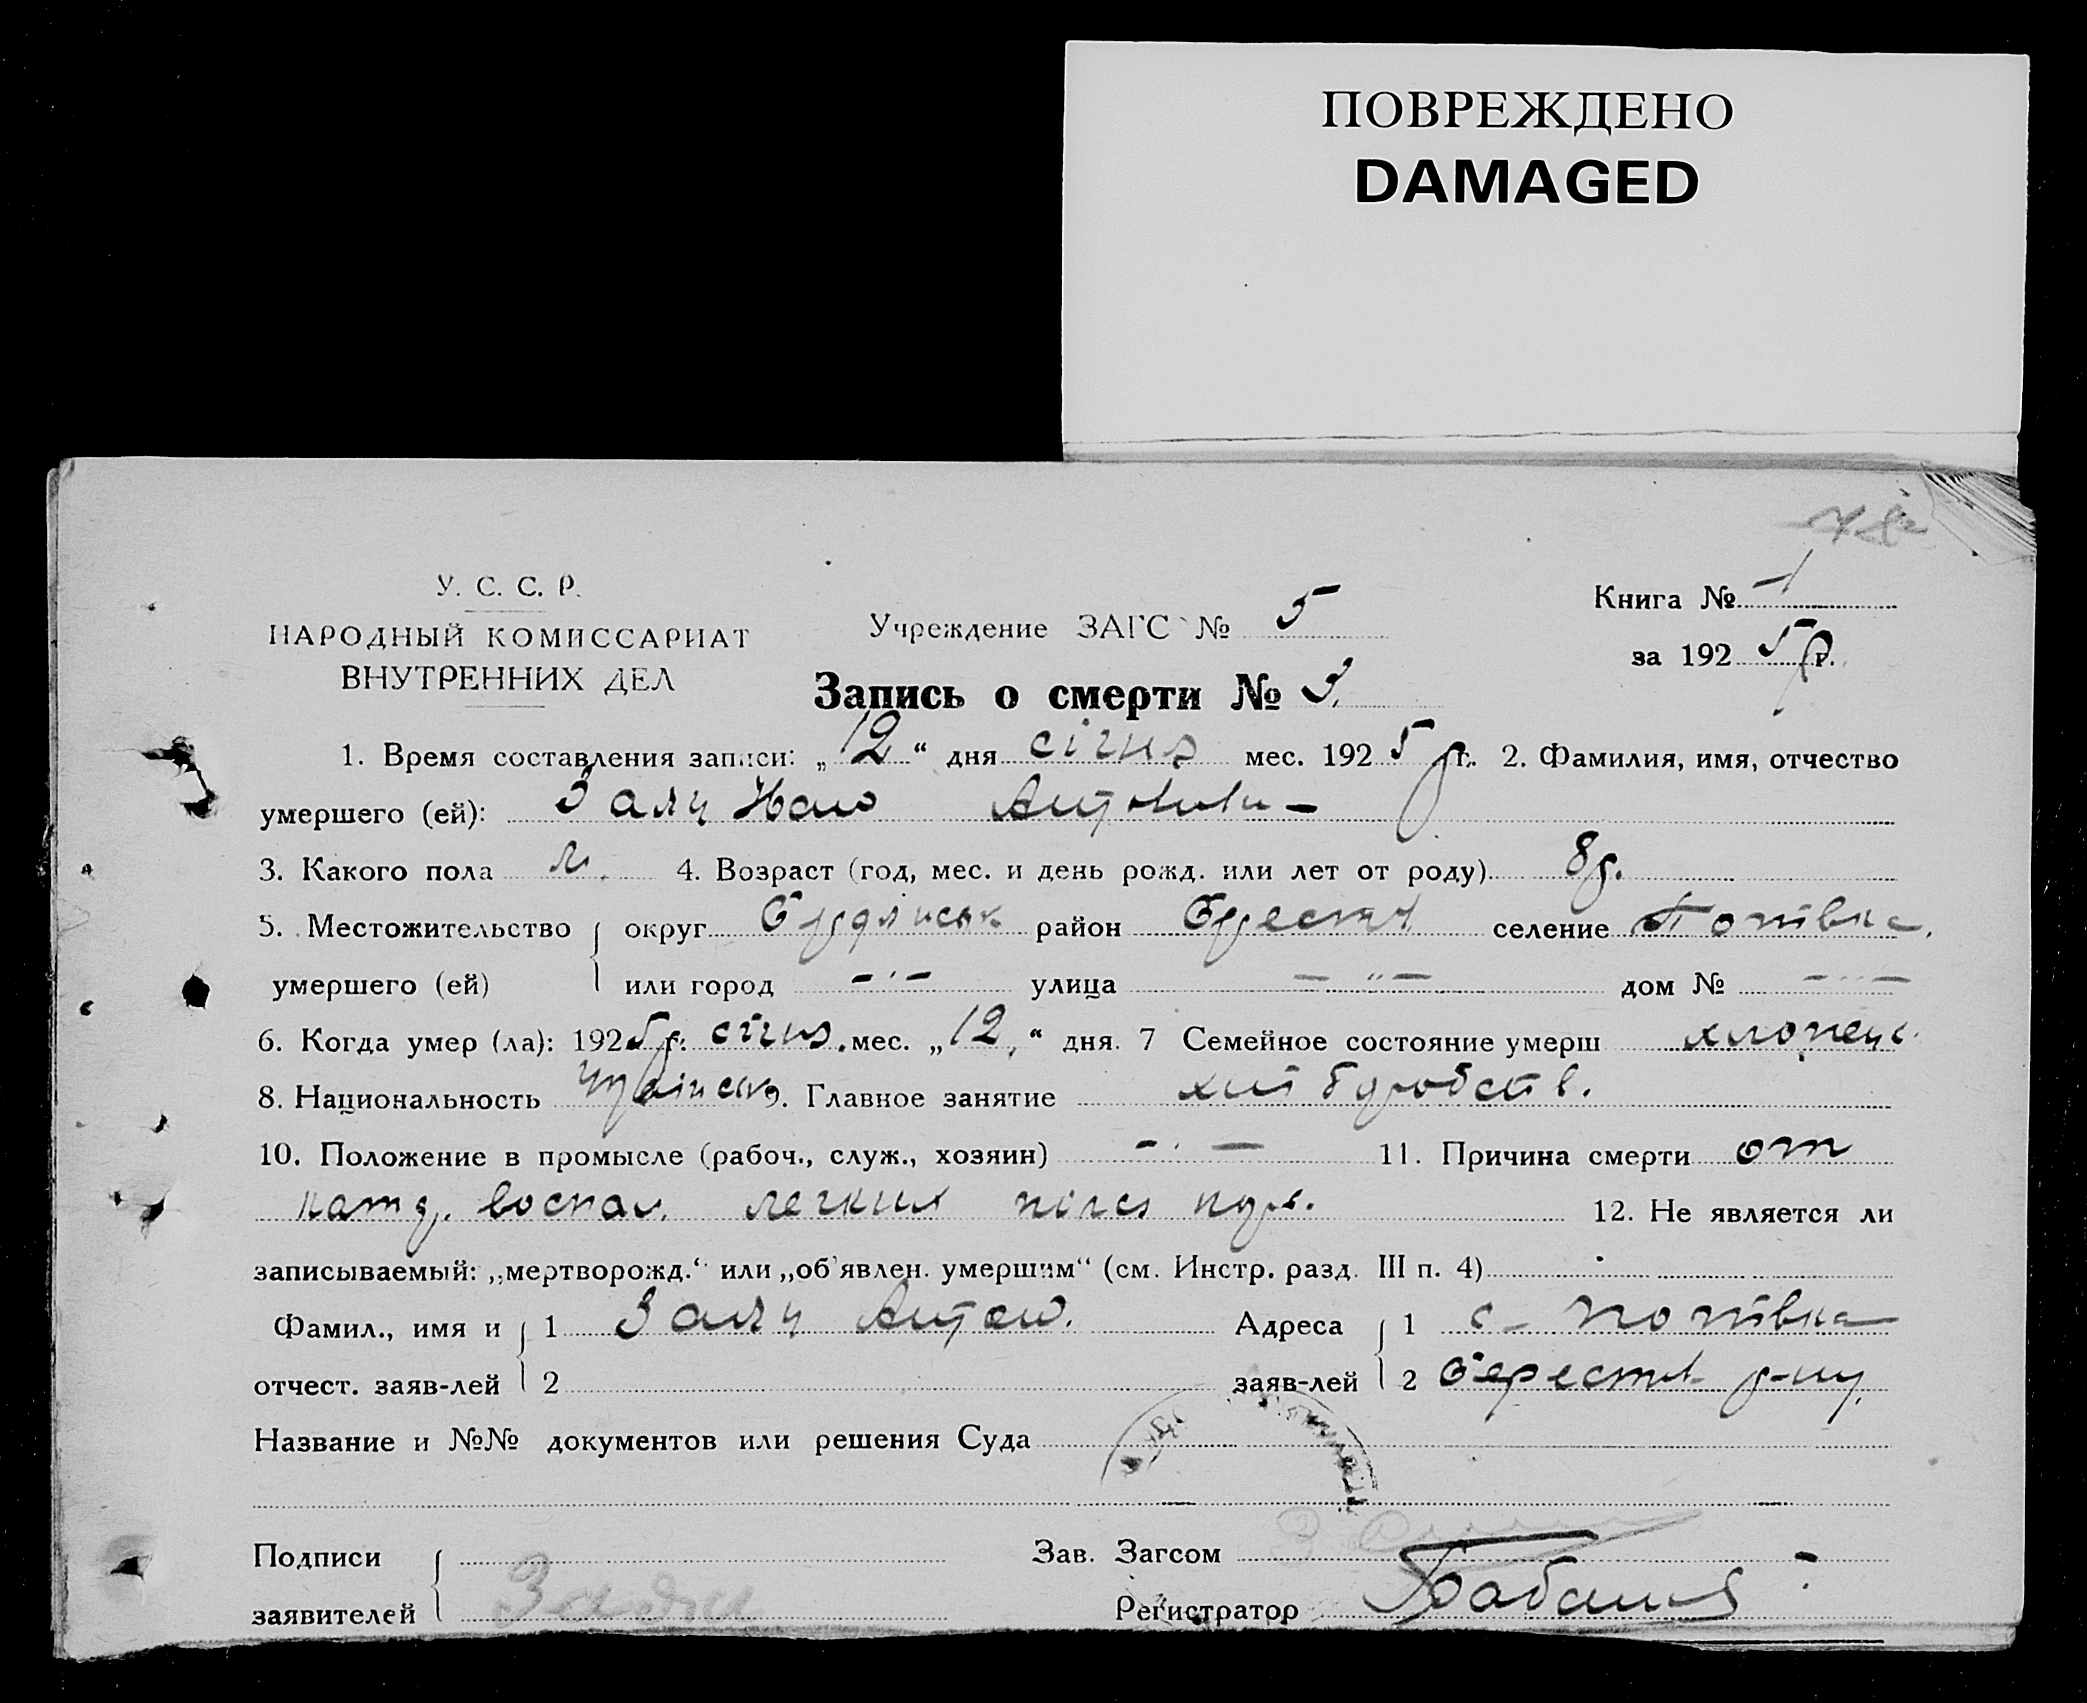 ПОВРЕЖДЕНО
DAMAGED
У. С. С. Р.
НАРОДНЫЙ КОМИССАРИАТ
ВНУТРЕННИХ ДЕЛ
Учреждение ЗАГС № 5
Книга № 1
за 1925 р г.
Запись о смерти № 3
1. Время составления записи: „12“ дня січня мес. 1925 р г. 2. Фамилия, имя, отчество
умершего (ей): Антонов. –
3. Какого пола м. 4. Возраст (год, мес. и день рожд. или лет от роду) 8 р.
5. Местожительство округ район Берестів селение Потівка
умершего (ей) или город – . – улица – „ – дом № – . . –
6. Когда умер (ла): 1925 р г. січня. мес. „12“ дня. 7 Семейное состояние умерш хлопець
8. Национальность 9. Главное занятие хліборобств.
10. Положение в промысле (рабоч., служ., хозяин) – . – 11. Причина смерти от
воспал. легких
12. Не является ли
записываемый: „мертворожд.“ или „об'явлен. умершим“ (см. Инстр. разд. III п. 4)
Фамил., имя и 1 Антон. Адреса 1 с – Потівка
отчест. заяв-лей 2 заяв-лей 2 Берестів р-ну
Название и №№ документов или решения Суда
Подписи Зав. Загсом
заявителей Регистратор